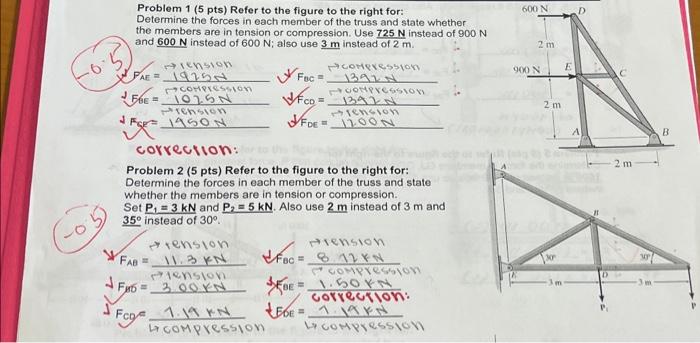 Problem 1 (5 pts) Refer to the figure to the right for:
Determine the forces in each member of the truss and state whether
the members are in tension or compression. Use 725 N instead of 900 N
and 600 N instead of 600 N; also use 3 m instead of 2 m.
-0.5
→tension
FAE = 1925N
→compression
FBC = 1392N
→compression
FBE = 1025N
→compression
FCD = 1392N
→tension
FCE = 1450N
→tension
FDE = 1200N
correction:
600 N
D
2 m
900 N
E
C
2 m
A
B
2 m
Problem 2 (5 pts) Refer to the figure to the right for:
Determine the forces in each member of the truss and state
whether the members are in tension or compression.
Set P1 = 3 kN and P2 = 5 kN. Also use 2 m instead of 3 m and
35° instead of 30°.
-0.5
→tension
FAB = 11.3 KN
→tension
FBC = 8.72 KN
→tension
FBD = 3.00 KN
→compression
FBE = 1.50 KN
correction:
FCD = 7.14 KN
↳compression
FDE = 7.14 KN
↳compression
A
B
30°
30°
E
D
3 m
3 m
P1
P